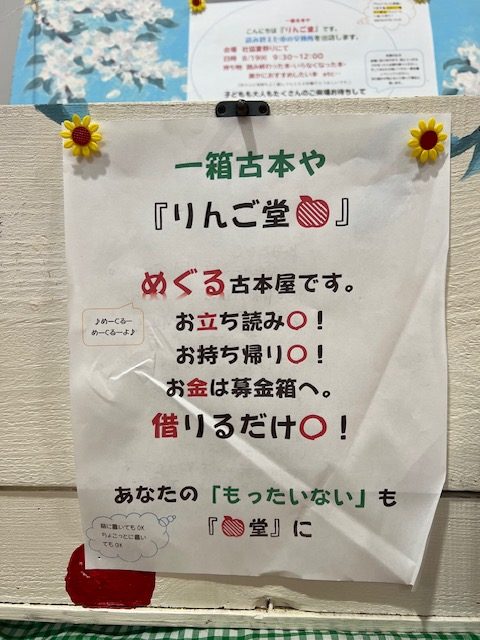 一箱古本や
こんにちは『りんご堂』です。
読み終えた本の交換所を出店します。
会場 社協夏祭りにて
日時 8/19㈯ 9:30~12:00
持ち物 読み終わった本・いらなくなった本・
誰かにおすすめしたい本
子どもも大人もたくさんのご来場お待ちして
一箱古本や
『りんご堂』
めぐる古本屋です。
♪めーぐるー
めーぐるーよ♪
お立ち読み〇！
お持ち帰り〇！
お金は募金箱へ。
借りるだけ〇！
あなたの「もったいない」も
『堂』に
箱に置いてもOK
ちょこっとに置い
てもOK